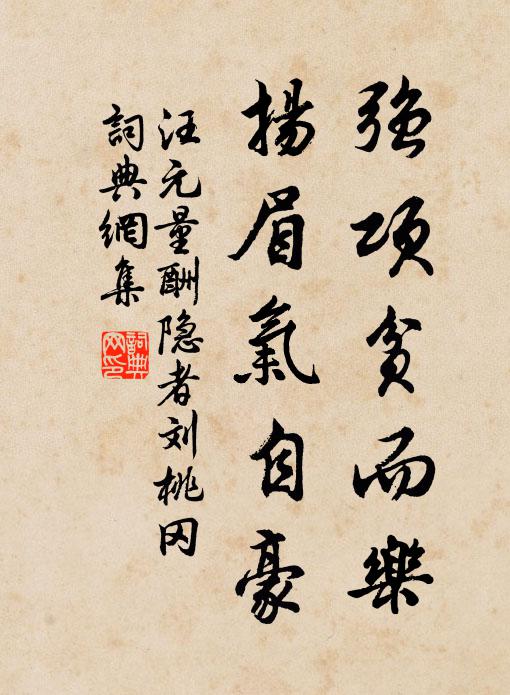 强项贫而樂
揚眉氣自豪
汪元量酬隐者刘桃冈
詞典網集
詞典
网印